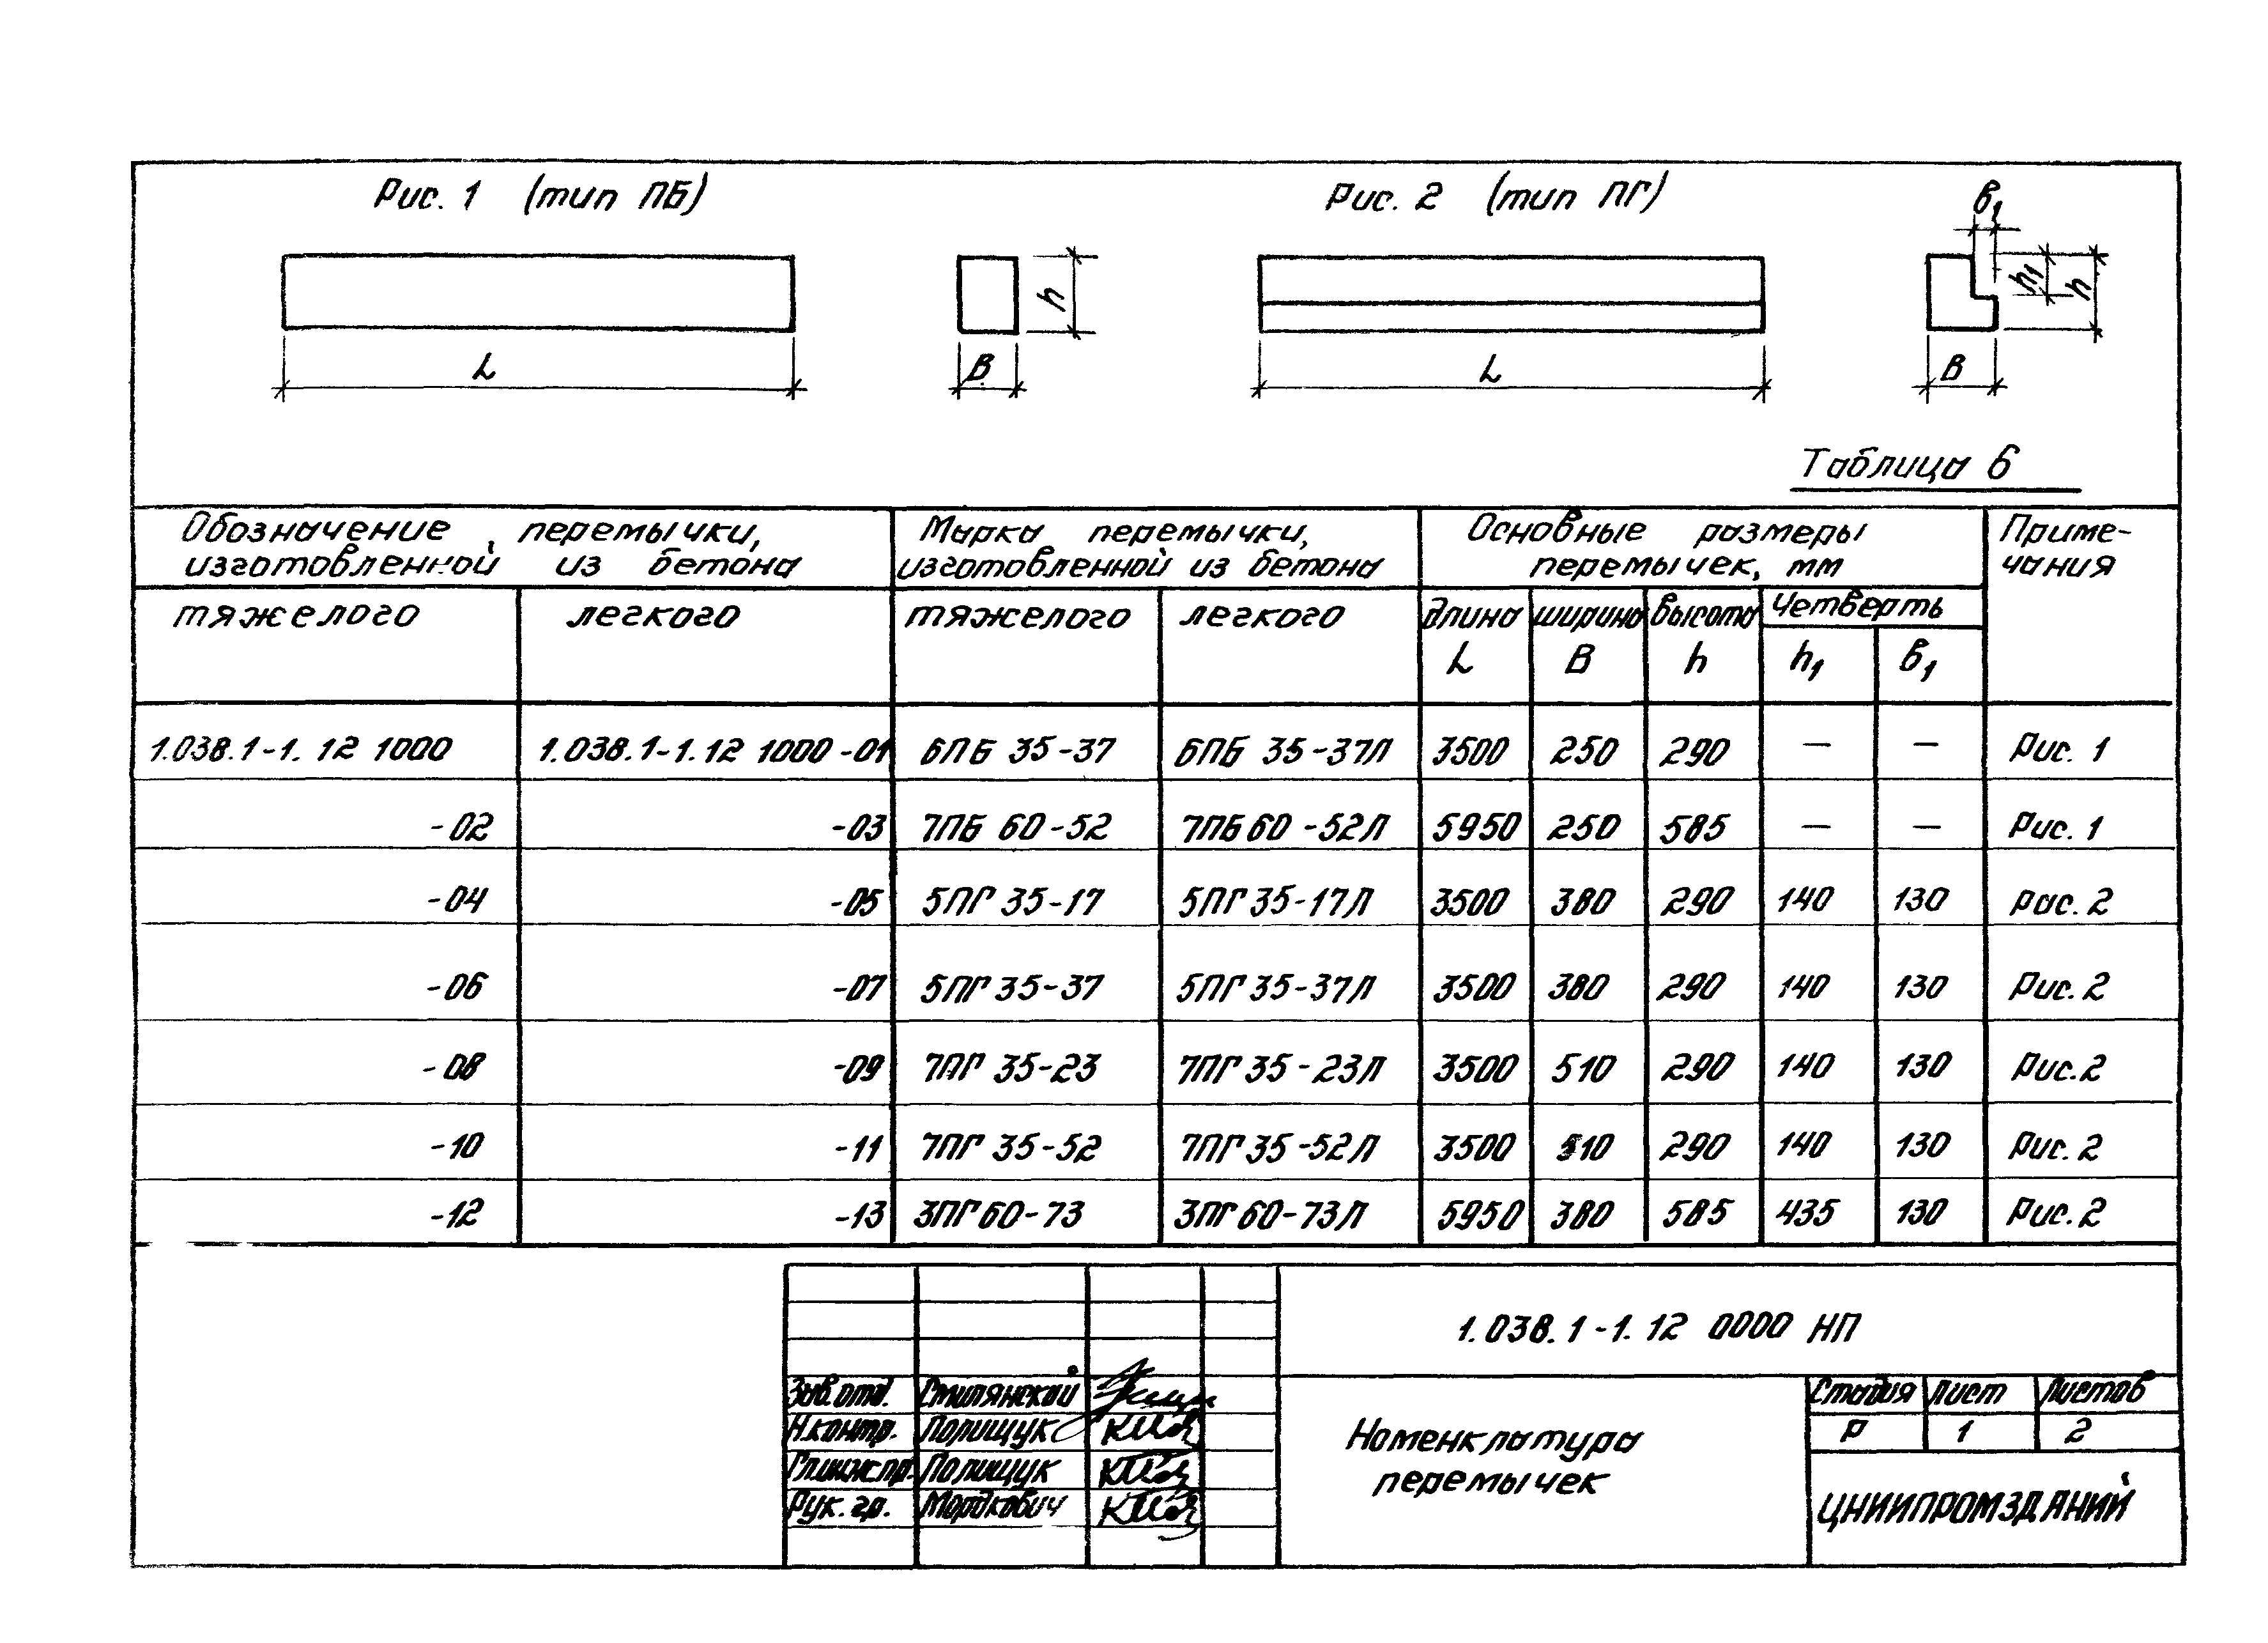 Рис. 1 (тип ПБ)
Рис. 2 (тип ПГ)
в1
h
h1
h
L
В
L
В
Таблица 6
Обозначение перемычки, изготовленной из бетона
Марка перемычки, изготовленной из бетона
Основные размеры перемычек, мм
Приме-
чания
тяжелого легкого тяжелого легкого длина ширина высота четверть
L В h h1 в1
1.038.1-1. 12 1000 1.038.1-1.12 1000-01 6ПБ 35-37 6ПБ 35-37Л 3500 250 290 — — Рис. 1
-02 -03 7ПБ 60-52 7ПБ60-52Л 5950 250 585 — — Рис. 1
-04 -05 5ПГ 35-17 5ПГ35-17Л 3500 380 290 140 130 Рис. 2
-06 -07 5ПГ 35-37 5ПГ35-37Л 3500 380 290 140 130 Рис. 2
-08 -09 7ПГ 35-23 7ПГ35-23Л 3500 510 290 140 130 Рис. 2
-10 -11 7ПГ 35-52 7ПГ35-52Л 3500 510 290 140 130 Рис. 2
-12 -13 3ПГ60-73 3ПГ60-73Л 5950 380 585 435 130 Рис. 2
1.038.1-1. 12 0000 НП
Зав.отд. Смилянский
Н.контр. Полищук
Гл.инж.пр. Полищук
Рук. гр. Мордкович
Номенклатура
перемычек
Стадия Лист Листов
Р 1 2
ЦНИИПРОМЗДАНИЙ